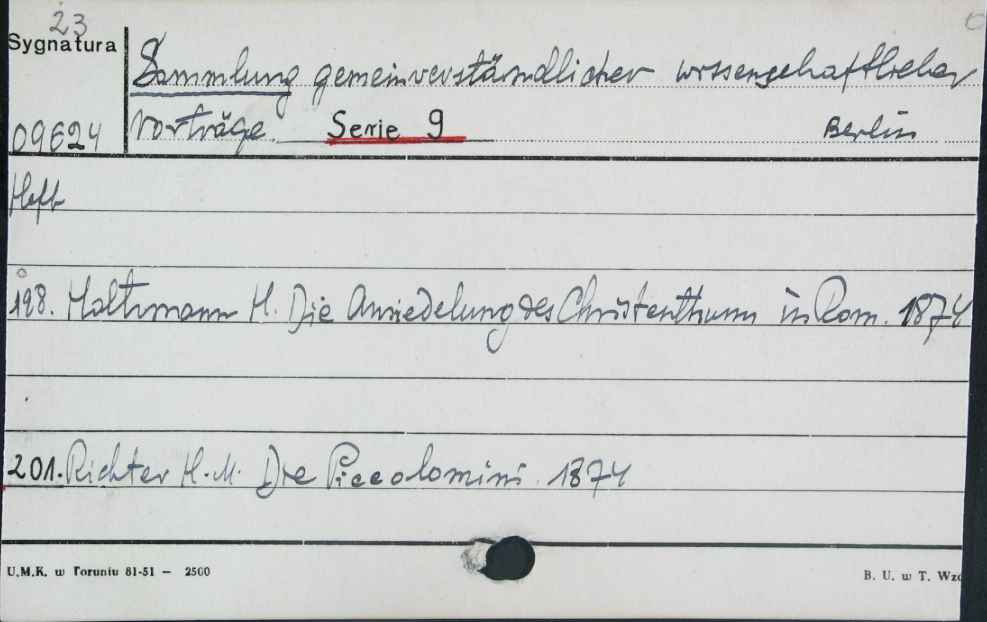 23
Sygnatura
Sammlung gemeinverständlicher wissenschaftlicher
09624 Vorträge. Serie 9 Berlin
Heft
198. Holtzmann H. Die Ansiedelung des Christenthums in Rom. 1874
201. Richter H. M. Die Piccolomini. 1874
U.M.K. w Toruniu 81-51 — 2500
B. U. w T. Wzó